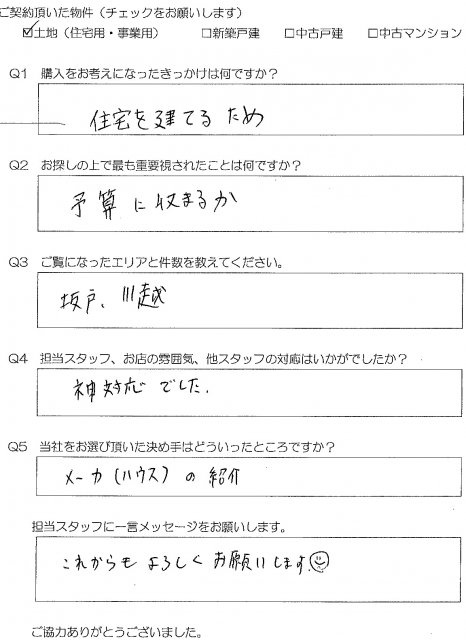 ご契約頂いた物件（チェックをお願いします）
☑土地（住宅用・事業用）　□新築戸建　□中古戸建　□中古マンション
Q1　購入をお考えになったきっかけは何ですか？
住宅を建てるため
Q2　お探しの上で最も重要視されたことは何ですか？
予算に収まるか
Q3　ご覧になったエリアと件数を教えてください。
坂戸、川越
Q4　担当スタッフ、お店の雰囲気、他スタッフの対応はいかがでしたか？
神対応でした。
Q5　当社をお選び頂いた決め手はどういったところですか？
メーカ（ハウス）の紹介
担当スタッフに一言メッセージをお願いします。
これからもよろしくお願いします
ご協力ありがとうございました。